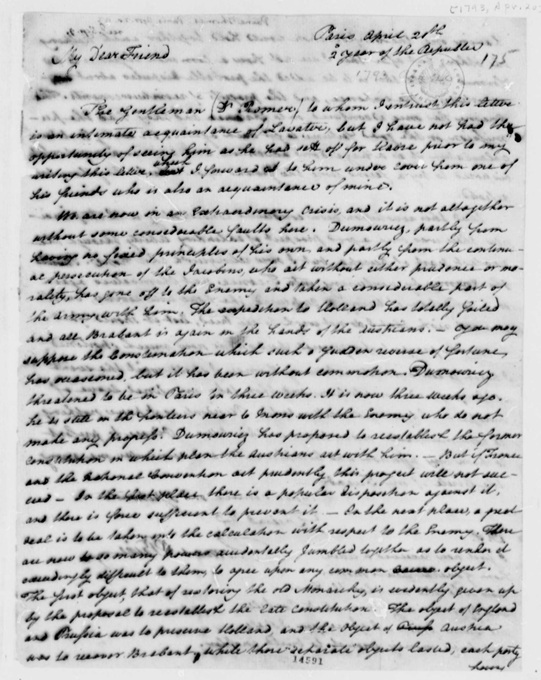 Paris April 20th
2d year of the Republic
My Dear Friend
175
The Gentleman (Dr Romer) to whom I entrust this letter
is an intimate acquaintance of Lavater, but I have not had the
opportunity of seeing him as he had sett off for Havre prior to my
writing this letter, which I forward to him under cover from one of
his friends who is also an acquaintance of mine.
We are now in an extraordinary crisis, and it is not altogether
without some considerable faults here. Dumouriez, partly from
having no fixed principles of his own and partly from the continu-
al persecution of the Jacobins, who act without either prudence or mo-
rality, has gone off to the Enemy and taken a considerable part of
the Army with him. The expedition to Holland has totally failed
and all Brabant is again in the hands of the Austrians. — You may
suppose the Consternation which such a sudden reverse of fortune
has occasioned, but it has been without commotion. Dumouriez
threatened to be in Paris in three weeks. It is now three weeks ago.
he is still on the frontiers near to Mons with the Enemy, who do not
made any progress. Dumouriez has proposed to reestablish the former
Constitution in which plan the Austrians act with him. — But if France
and the National Convention act prudently this project will not suc-
ceed — In the first place there is a popular disposition against it,
and there is force sufficient to prevent it. — In the next place, a great
deal is to be taken into the calculation with respect to the Enemy. There
are now so many powers accidentally jumbled together as to render it
exceedingly difficult to them, to agree upon any common object.
The first object, that of restoring the old Monarchy, is evidently given up
by the proposal to reestablish the late Constitution. The object of England
and Prussia was to preserve Holland, and the object of Austria
was to recover Brabant; while those separate objects lasted, each party
having
14591